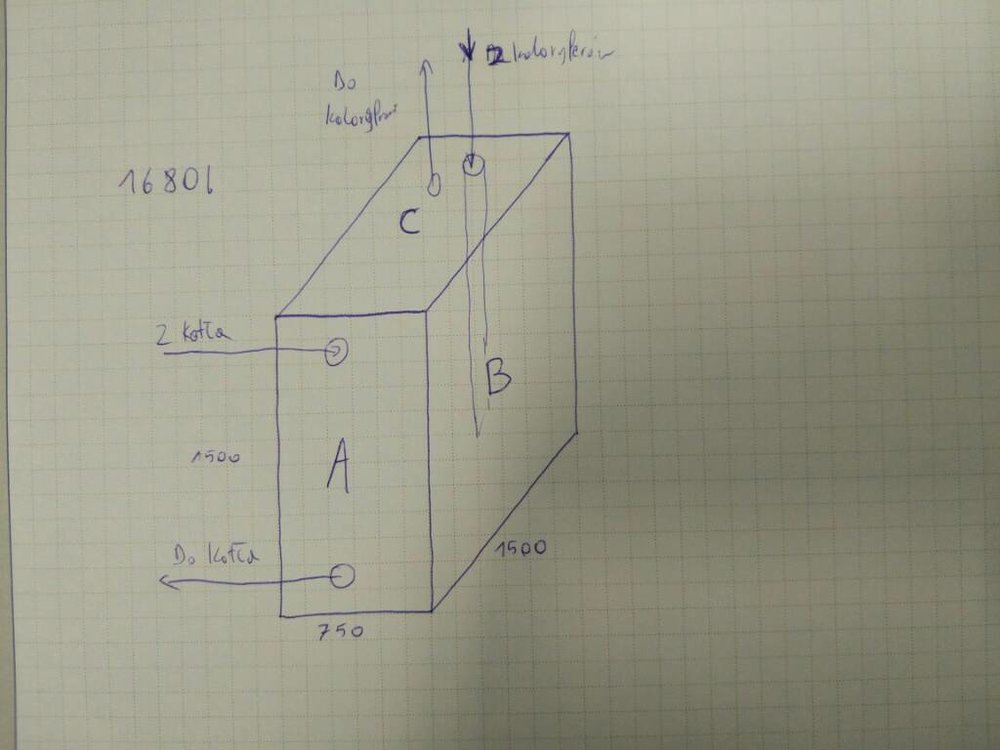 Z kaloryferów
Do
kaloryferów
1680l
C
Z kotła
B
1500
A
1500
Do kotła
750